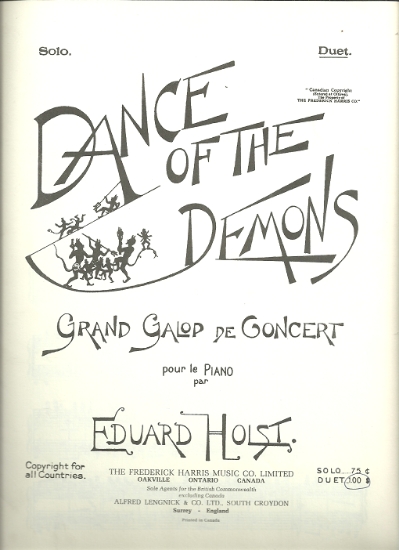 Solo.
Duet.
"Canadian Copyright
The Property of
THE FREDERICK HARRIS CO."
DANCE
OF THE
DEMONS
GRAND GALOP DE CONCERT
pour le PIANO
par
EDUARD HOLST.
Copyright for
all Countries.
THE FREDERICK HARRIS MUSIC CO. LIMITED
OAKVILLE ONTARIO CANADA
Sole Agents for the British Commonwealth
excluding Canada
ALFRED LENGNICK & CO. LTD., SOUTH CROYDON
Surrey - England
Printed in Canada
SOLO .... 75 ¢
DUET 1.00 $